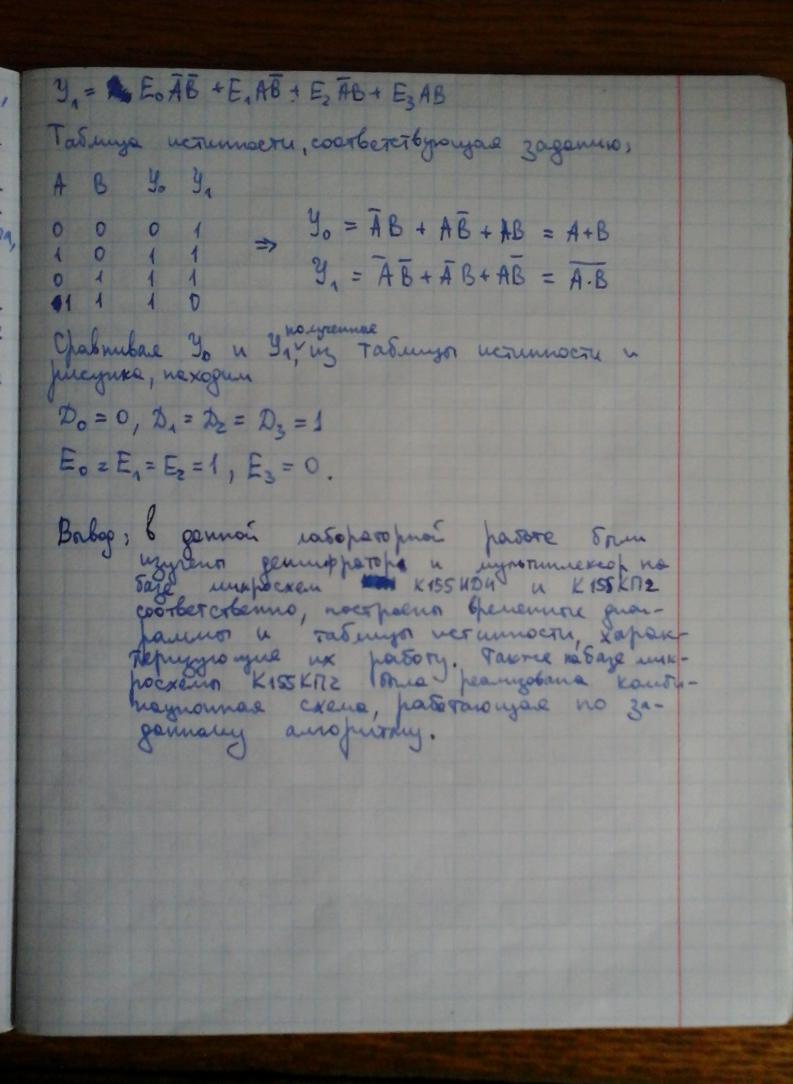 У₁ = E₀ĀB̄ + E₁AB̄ + E₂ĀB + E₃AB
Таблица истинности, соответствующая заданию:
A B У₀ У₁
0 0 0 1
1 0 1 1
0 1 1 1
1 1 1 0
⇒ У₀ = ĀB + AB̄ + AB = A+B
У₁ = ĀB̄ + ĀB + AB̄ = \overline{A·B}
полученные
Сравнивая У₀ и У₁, из таблицы истинности и
рисунка, находим
D₀ = 0, D₁ = D₂ = D₃ = 1
E₀ = E₁ = E₂ = 1, E₃ = 0.
Вывод: в данной лабораторной работе были
изучены дешифратор и мультиплексор на
базе микросхем К155ИД4 и К155КП2
соответственно, построены временные диаг-
раммы и таблицы истинности, харак-
теризующие их работу. Также на базе мик-
росхемы К155КП2 была реализована комби-
национная схема, работающая по за-
данному алгоритму.